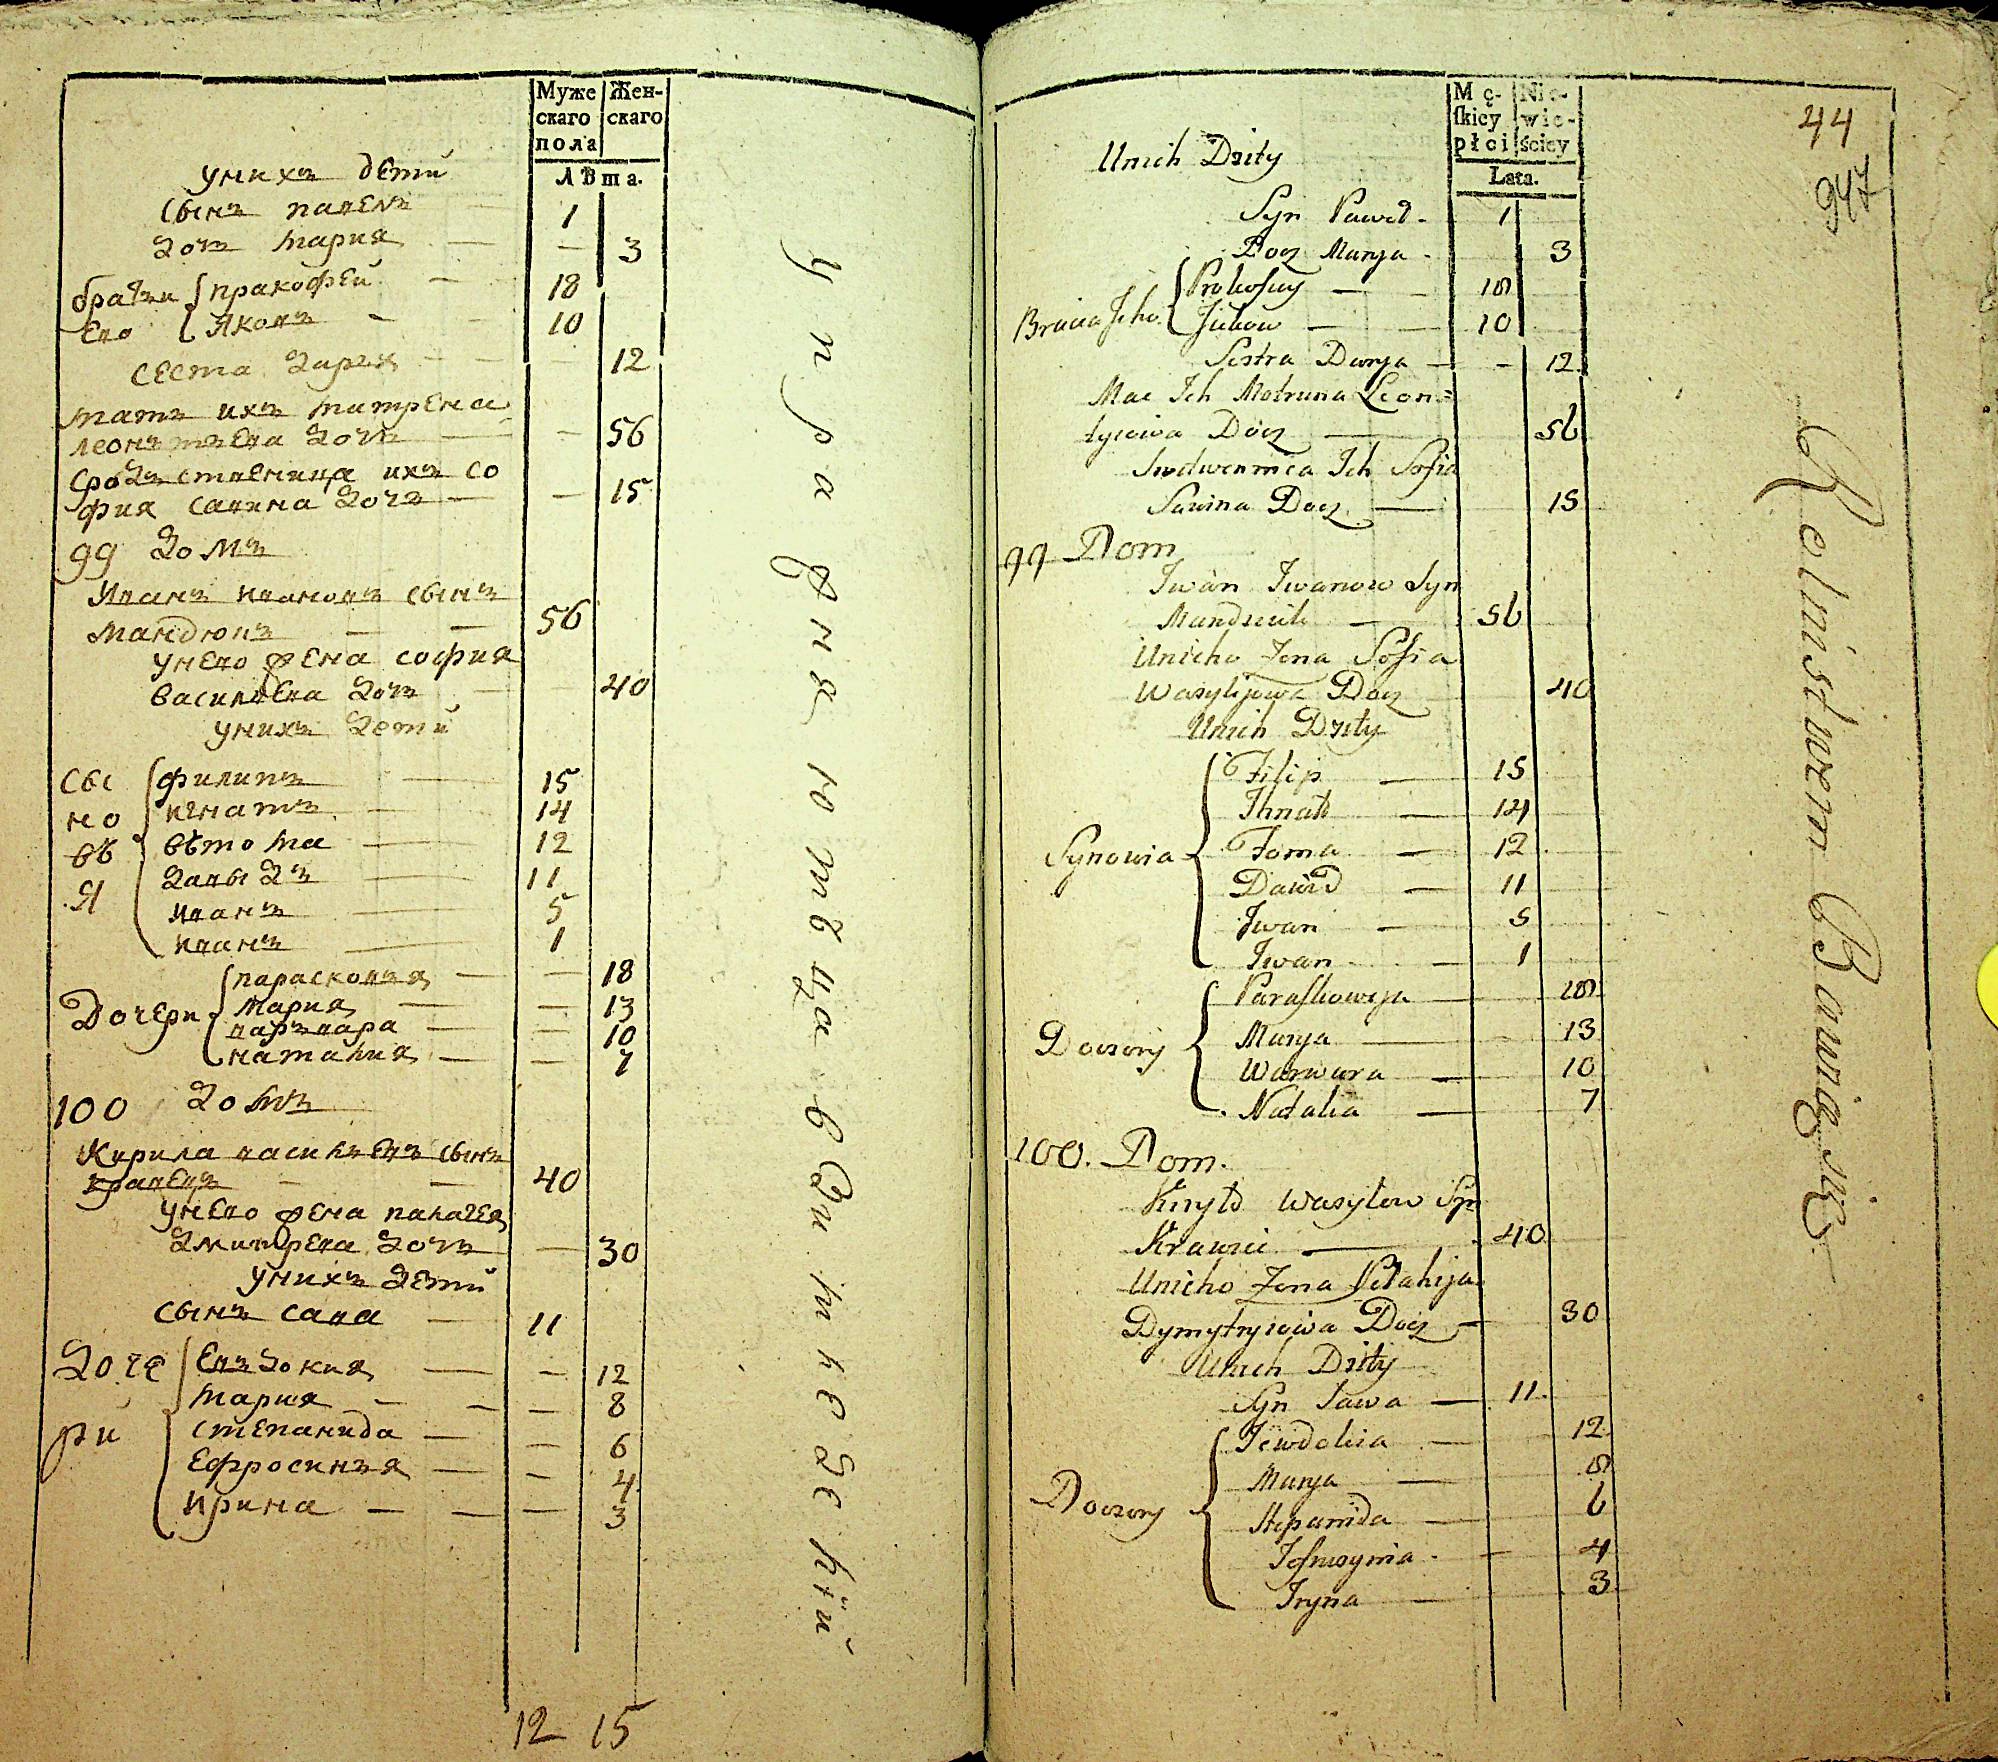 Муже Жен-
скаго скаго
пола
лѣта.
унихъ дети
сынъ павелъ 1
дочъ мария — 3
братьи его { пракофей — 18
Яковъ — 10
сеста дарья — 12
мать ихъ матрена
леонтъева дочь — 56
сродъственица ихъ со
фия савина дочъ — 15
99 домъ
Иванъ ивановъ сынъ
мандюкъ — 56
унего жена софия
василъева дочъ — 40
унихъ дети
сыновья { филипъ — 15
игнатъ — 14
ѳтома — 12
давыдъ — 11
иванъ — 5
иванъ — 1
Дочери { парасковъя — 18
мария — 13
варъвара — 10
наталия — 7
100 домъ
Кирила василъевъ сынъ
кравецъ — 40
унего жена палагея
дмитрева дочъ — 30
унихъ дети
сынъ сава — 11
дочери { Евъдокия — 12
мария — 8
степанида — 6
Ефросинъя — 4
ирина — 3
12 15
управляю
44
947
Mę- Nie-
ſkiey wie-
płci ściey
Lata.
Unich Dzity
Syn Paweł 1
Docz Marya 3
Bracia Jeho { Prokofiey — 18
Jakow — 10
Sestra Darya — 12
Mac Ich Motruna Leon=
tyiowa Docz — 56
Srodwennica Ich Sofia
Sawina Docz — 15
99 Dom
Iwan Iwanow Syn
Mandziuk — 56
Unieho Żona Sofia
Wasylijowa Docz 40
Unich Dzity
Synowia { Filip — 15
Ihnat — 14
Foma — 12
Dawid — 11
Iwan — 5
Iwan — 1
Doczery { Paraskowija — 18
Marya — 13
Warwara — 10
Natalia — 7
100. Dom.
Kiryło Wasylow Syn
Krawiec — 40
Unieho Żona Pelahija
Dymytryiowa Docz — 30
Unich Dzity
Syn Sawa — 11
Doczery { Jewdokia — 12
Marya — 8
Stepanida — 6
Jefrosynia — 4
Iryna — 3